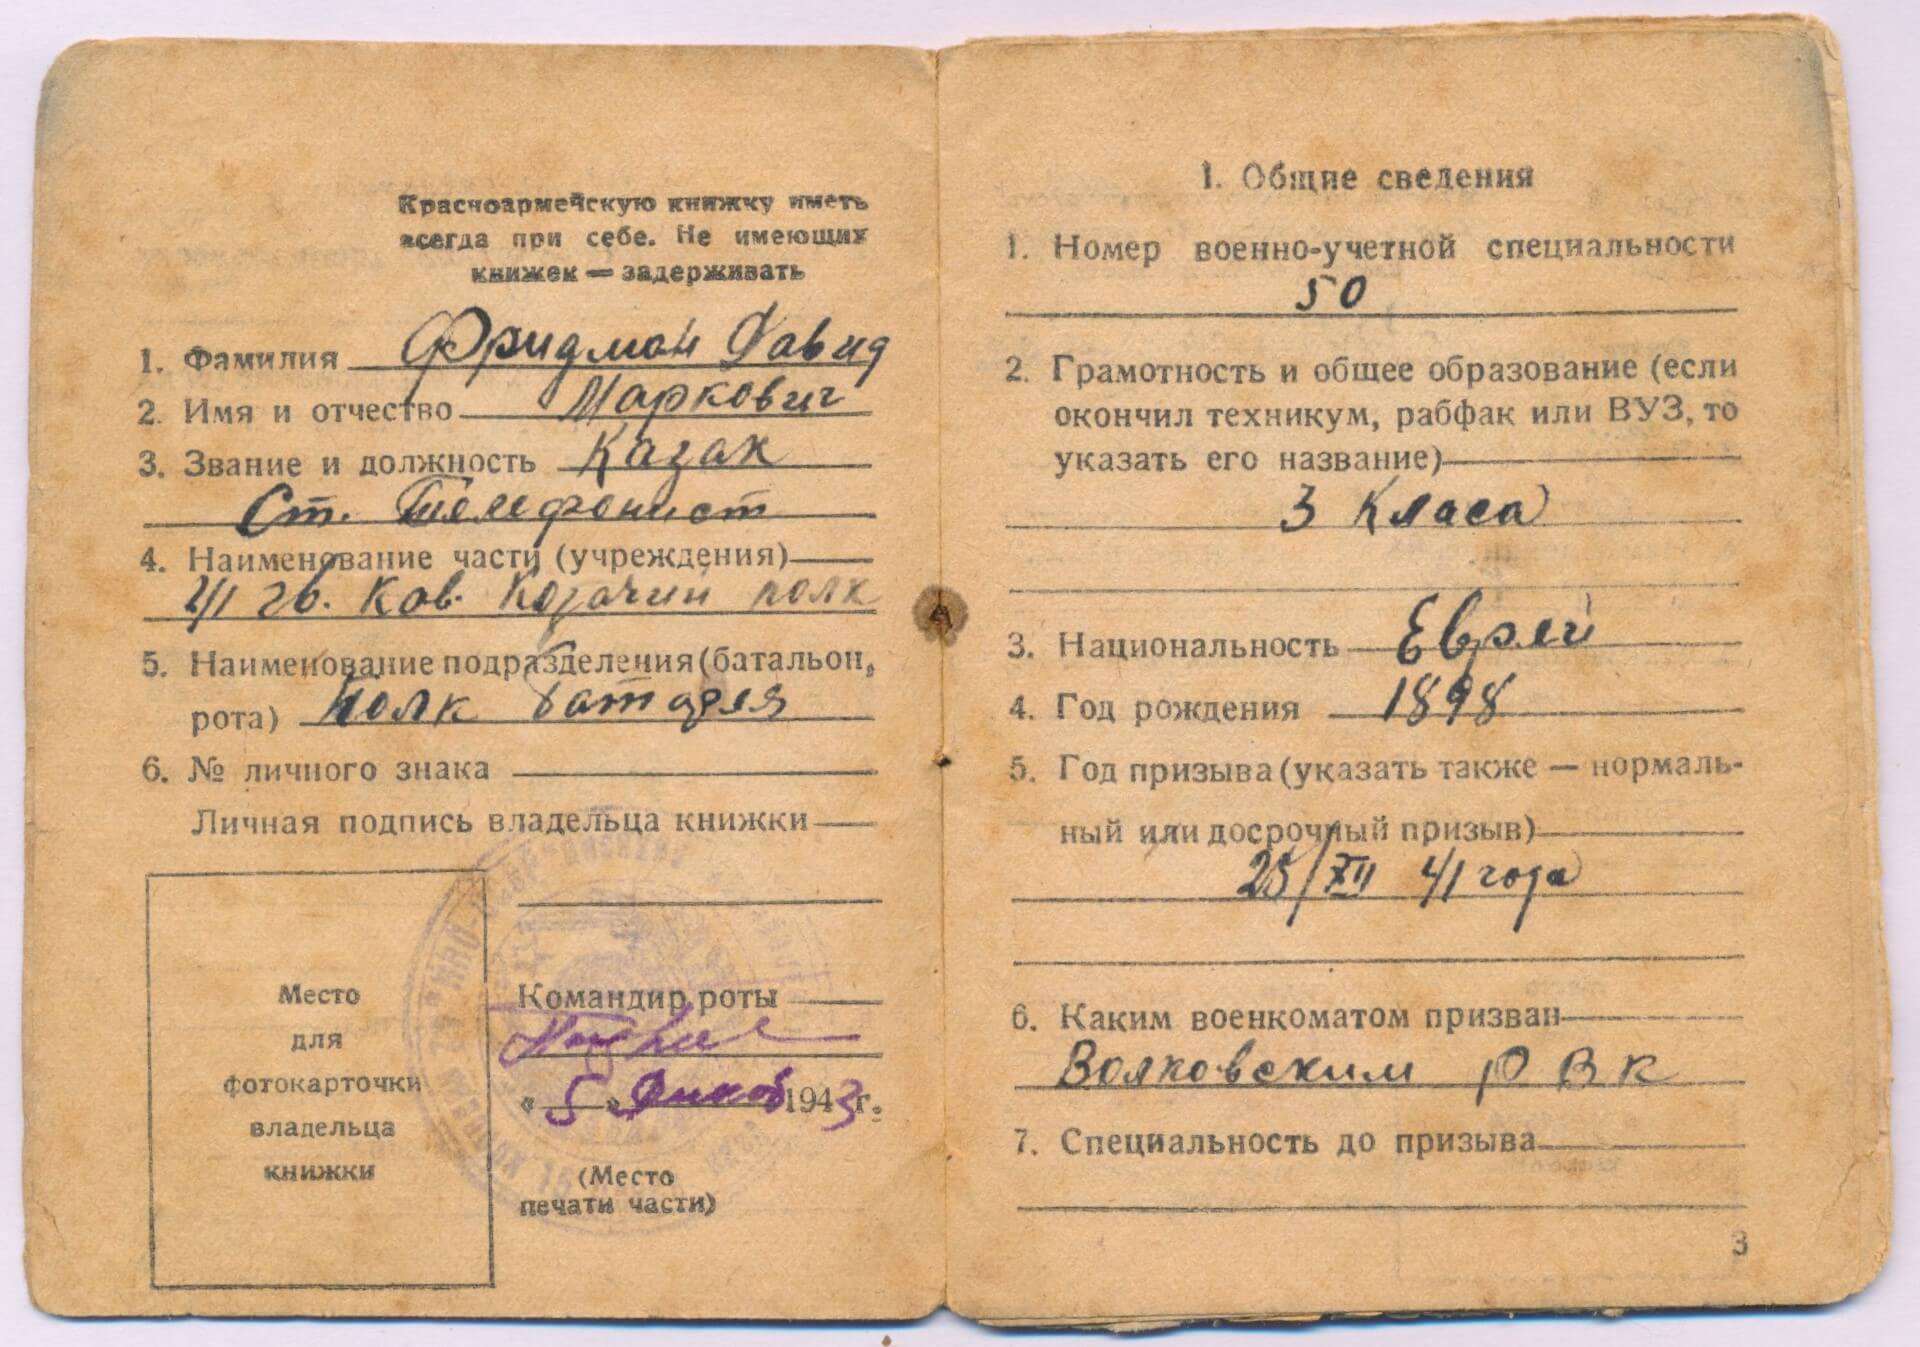 Красноармейскую книжку иметь
всегда при себе. Не имеющих
книжек — задерживать
1. Фамилия Фридман Давид
2. Имя и отчество Маркович
3. Звание и должность Казак
Ст. Телефонист
4. Наименование части (учреждения)
41 гв. Кав. Козачий полк
5. Наименование подразделения (батальон,
рота) Полк батарея
6. № личного знака
Личная подпись владельца книжки
Место
для
фотокарточки
владельца
книжки
Командир роты
« 5 » 1943 г.
(Место
печати части)
1. Общие сведения
1. Номер военно-учетной специальности
50
2. Грамотность и общее образование (если
окончил техникум, рабфак или ВУЗ, то
указать его название)
3 Класа
3. Национальность Еврей
4. Год рождения 1898
5. Год призыва (указать также — нормаль-
ный или досрочный призыв)
25/XII 41 года
6. Каким военкоматом призван
РВК
7. Специальность до призыва
3